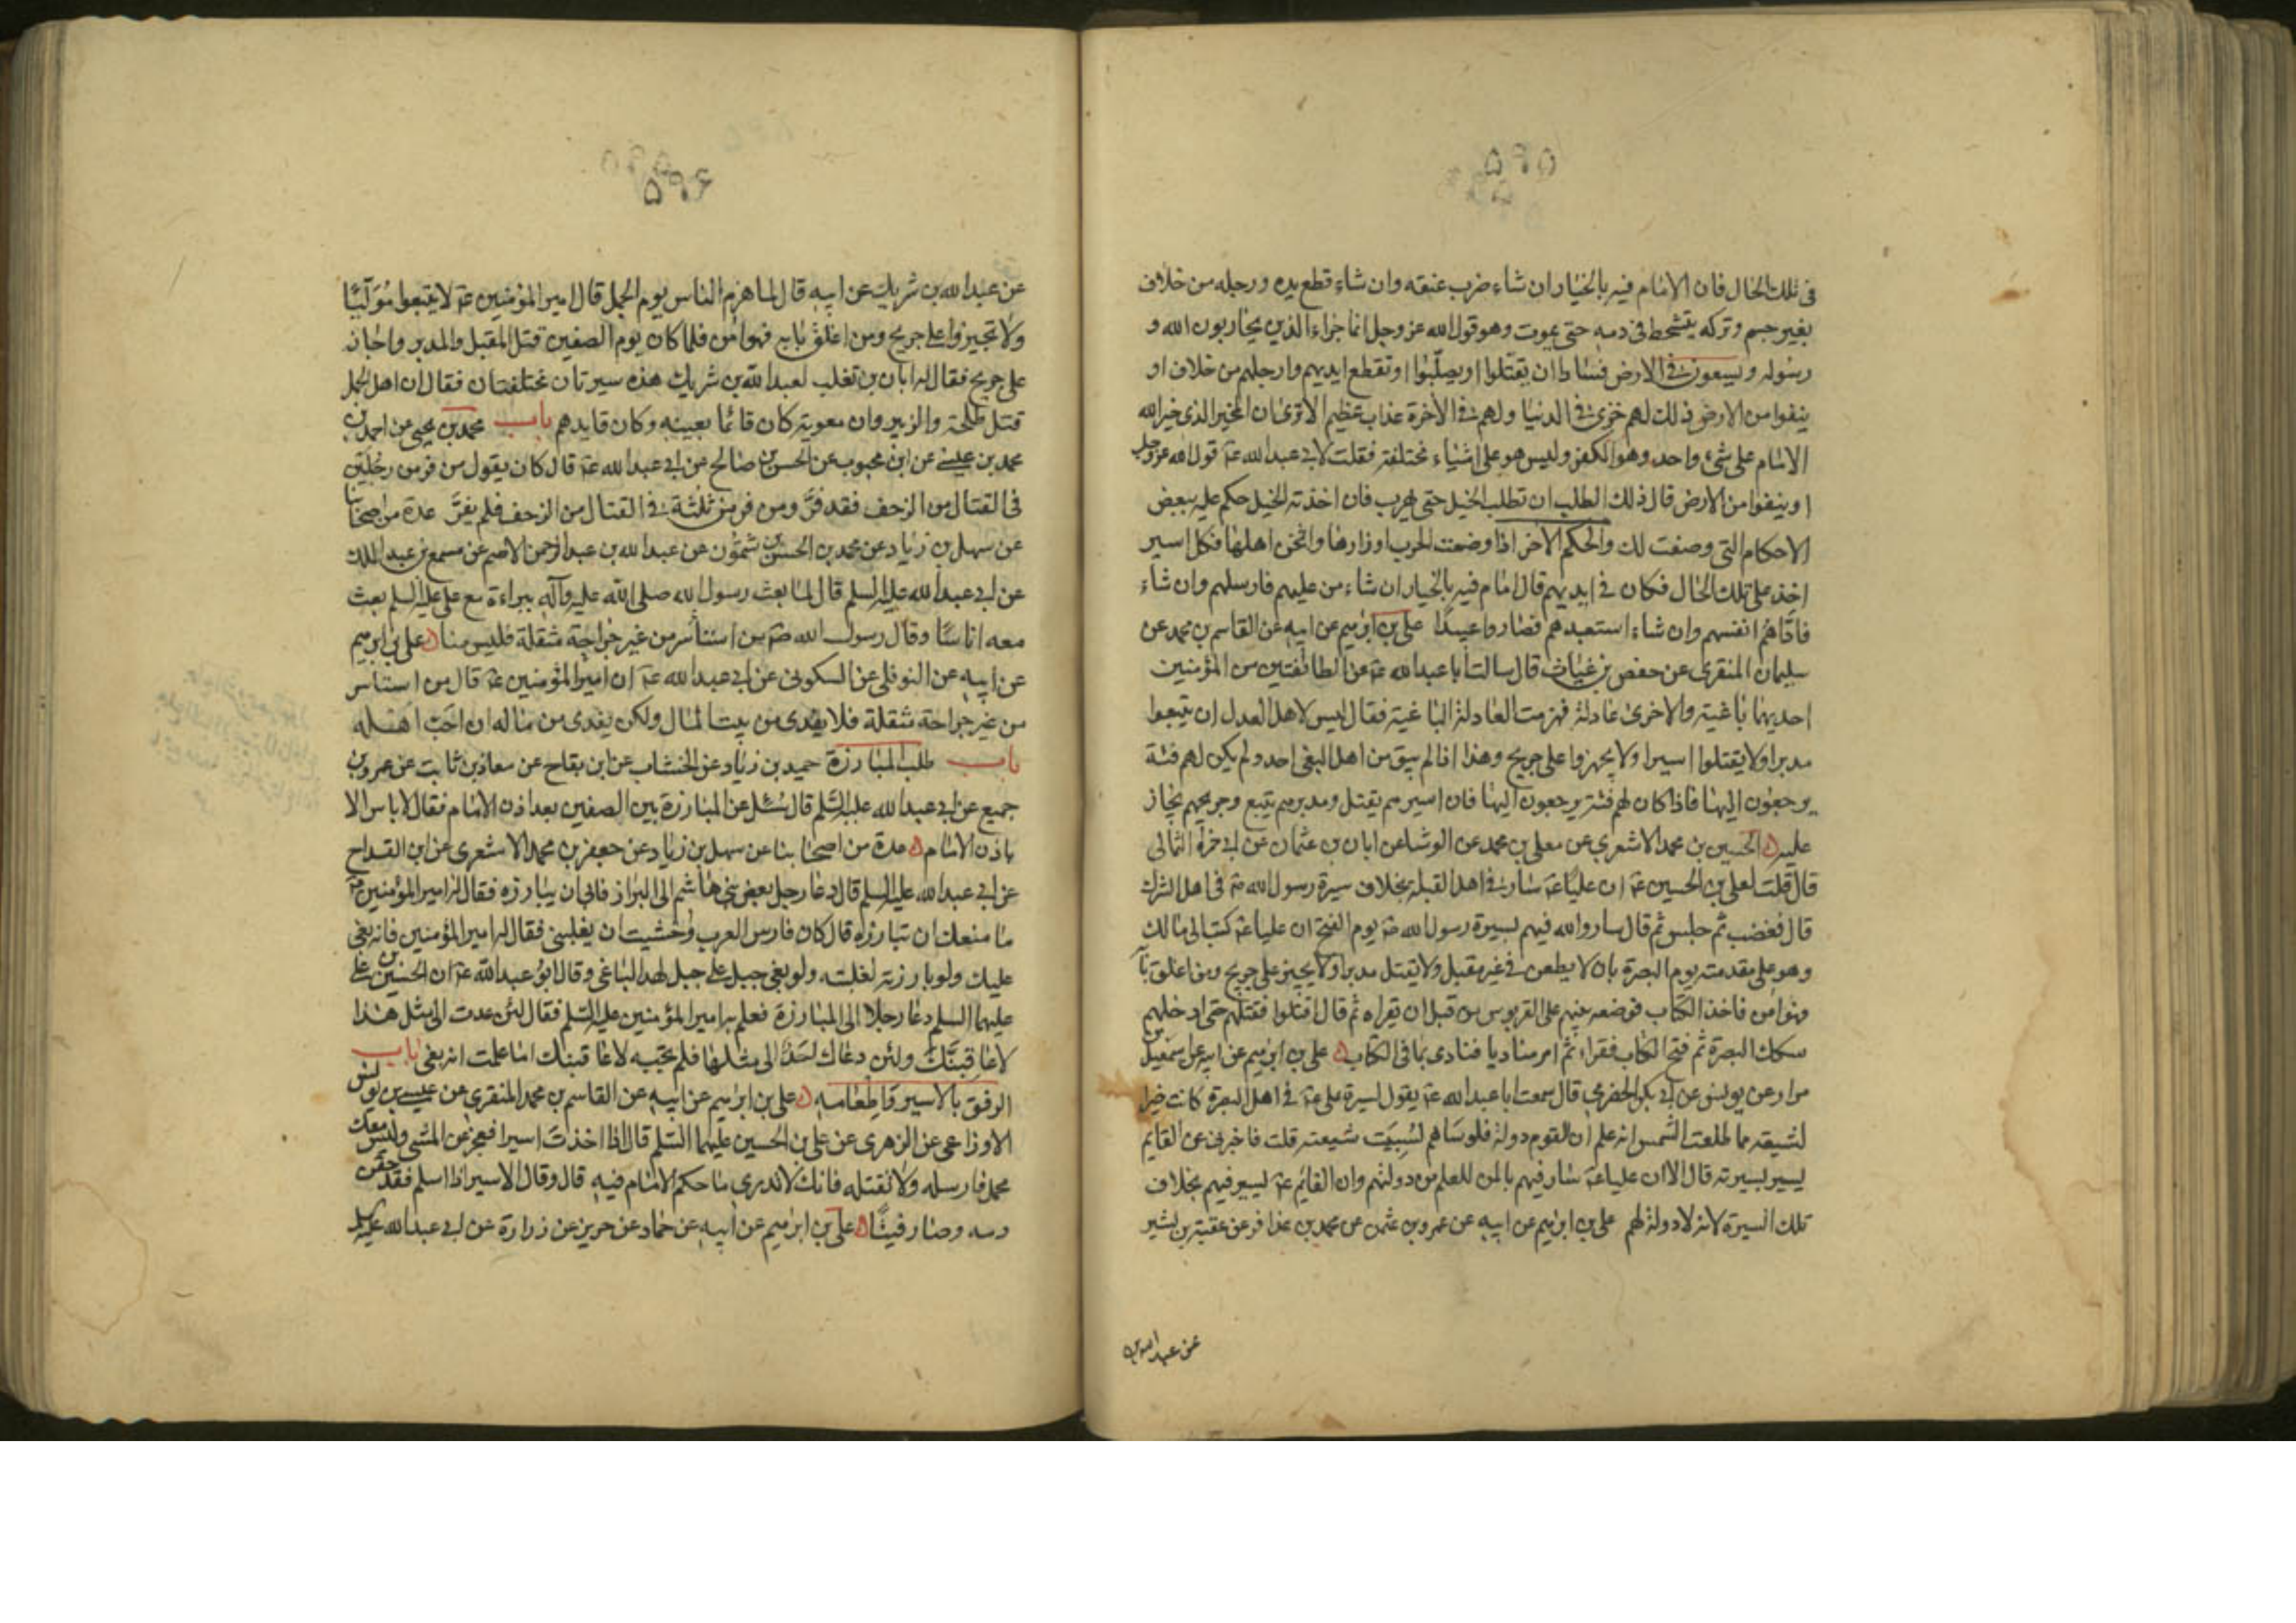 ۵۹۵
فى تلك الحال فان الامام فيه بالخيار ان شاء ضرب عنقه وان شاء قطع يده ورجله من خلاف
بغير حسم وتركه يتشحط فى دمه حتى يموت وهو قول الله عز وجل انما جزاء الذين يحاربون الله و
رسوله ويسعون فى الارض فسادا ان يقتلوا او يصلبوا او تقطع ايديهم وارجلهم من خلاف او
ينفوا من الارض ذلك لهم خزى فى الدنيا ولهم فى الآخرة عذاب عظيم الا ترى ان المخير الذى خير الله
الامام على شىء واحد وهو الكفر وليس هو على اشياء مختلفة فقلت لابى عبد الله عـ قول الله عز وجل
او ينفوا من الارض قال ذلك الطلب ان تطلب الخيل حتى يهرب فان اخذته الخيل حكم عليه ببعض
الاحكام التى وصفت لك والحكم الآخر اذا وضعت الحرب اوزارها واثخن اهلها فكل اسير
اخذ على تلك الحال فكان فى ايديهم قال امام فيه بالخيار ان شاء من عليهم فارسلهم وان شاء
فاداهم انفسهم وان شاء استعبدهم فصاروا عبيدا على بن ابرهيم عن ابيه عن القاسم بن محمد عن
سليمان المنقرى عن حفص بن غياث قال سالت ابا عبد الله عـ عن الطائفتين من المؤمنين
احديهما باغية والاخرى عادلة فهزمت العادلة الباغية فقال ليس لاهل العدل ان يتبعوا
مدبرا ولا يقتلوا اسيرا ولا يجهزوا على جريح وهذا اذا لم يبق من اهل البغى احد ولم يكن لهم فئة
يرجعون اليها فاذا كان لهم فئة يرجعون اليها فان اسيرهم يقتل ومدبرهم يتبع وجريحهم يجاز
عليه الحسين بن محمد الاشعرى عن معلى بن محمد عن الوشا عن ابان بن عثمان عن ابى حمزة الثمالى
قال قلت لعلى بن الحسين عـ ان عليا عـ سار فى اهل القبلة بخلاف سيرة رسول الله صـ فى اهل الشرك
قال فغضب ثم جلس ثم قال سار والله فيهم بسيرة رسول الله صـ يوم الفتح ان عليا عـ كتب الى مالك
وهو على مقدمته يوم البصرة بان لا يطعن فى غير مقبل ولا يقتل مدبرا ولا يجيز على جريح ومن اغلق بابه
فهو امن فاخذ الكتاب فوضعه بين يديه على القربوس من قبل ان يقراه ثم قال اقتلوا فقتلهم حتى ادخلهم
سكك البصرة ثم فتح الكتاب فقراه ثم امر مناديا فنادى بما فى الكتاب على بن ابرهيم عن ابيه عن اسمعيل بن
مرار عن يونس عن ابى بكر الحضرمى قال سمعت ابا عبد الله عـ يقول لسيرة على عـ فى اهل البصرة كانت خيرا
لشيعته مما طلعت الشمس انه علم ان للقوم دولة فلو سباهم لسبيت شيعته قلت فاخبرنى عن القايم
يسير بسيرته قال لا ان عليا عـ سار فيهم بالمن للعلم من دولتهم وان القايم عـ يسير فيهم بخلاف
تلك السيرة لانه لا دولة لهم على بن ابرهيم عن ابيه عن عمرو بن عثمن عن محمد بن عذافر عن عقبة بن بشير
عن عبد الله بن
۵۹۶
عن عبد الله بن شريك عن ابيه قال لما هزم الناس يوم الجمل قال امير المؤمنين عـ لا يتبعوا موليا
ولا تجيزوا على جريح ومن اغلق بابه فهو امن فلما كان يوم الصفين قتل المقبل والمدبر واجاز
على جريح فقال له ابان بن تغلب لعبد الله بن شريك هذه سيرتان مختلفتان فقال ان اهل الجمل
قتل طلحة والزبير وان معوية كان قائما بعينه وكان قايدهم باب محمد بن يحيى عن احمد بن
محمد بن عيسى عن ابن محبوب عن الحسن بن صالح عن ابى عبد الله عـ قال كان يقول من فر من رجلين
فى القتال من الزحف فقد فر ومن فر من ثلثة فى القتال من الزحف فلم يفر عدة من اصحابنا
عن سهل بن زياد عن محمد بن الحسن بن شمون عن عبد الله بن عبد الرحمن الاصم عن مسمع بن عبد الملك
عن ابى عبد الله عليه السلم قال لما بعث رسول الله صلى الله عليه وآله ببراءة مع على عليه السلم بعث
معه اناسا وقال رسول الله صـ من استأسر من غير جراحة مثقلة فليس منا على بن ابرهيم
عن ابيه عن النوفلى عن السكونى عن ابى عبد الله عـ ان امير المؤمنين عـ قال من استاسر
من غير جراحة مثقلة فلا يفدى من بيت المال ولكن يفدى من ماله ان احب اهله
باب طلب المبارزة حميد بن زياد عن الخشاب عن ابن بقاح عن معاذ بن ثابت عن عمرو بن
جميع عن ابى عبد الله عليه السلم قال سئل عن المبارزة بين الصفين بعد اذن الامام فقال لا باس الا
باذن الامام عدة من اصحابنا عن سهل بن زياد عن جعفر بن محمد الاشعرى عن ابن القداح
عن ابى عبد الله عليه السلم قال دعا رجل بعض بنى هاشم الى البراز فابى ان يبارزه فقال له امير المؤمنين عـ
ما منعك ان تبارزه قال كان فارس العرب وخشيت ان يغلبنى فقال له امير المؤمنين فانه بغى
عليك ولو بارزته لغلبته ولو بغى جبل على جبل لهد الباغى وقال ابو عبد الله عـ ان الحسين بن على
عليهما السلم دعا رجلا الى المبارزة فعلم به امير المؤمنين عليه السلم فقال لئن عدت الى مثل هذا
لاعاقبنك ولئن دعاك احد الى مثلها فلم تجبه لاعاقبنك اما علمت انه بغى باب
الرفق بالاسير واطعامه على بن ابرهيم عن ابيه عن القاسم بن محمد المنقرى عن عيسى بن يونس
الاوزاعى عن الزهرى عن على بن الحسين عليهما السلم قال اذا اخذت اسيرا فعجز عن المشى وليس معك
محمل فارسله ولا تقتله فانك لا تدرى ما حكم الامام فيه قال وقال الاسير اذا اسلم فقد حقن
دمه وصار فيئا على بن ابرهيم عن ابيه عن حماد عن حريز عن زرارة عن ابى عبد الله عليه السلم